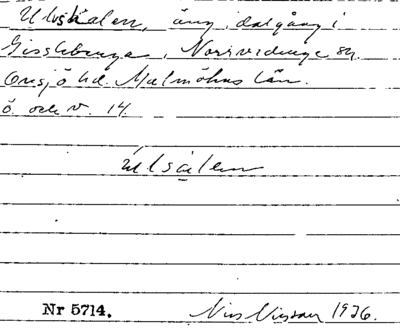 Ulvsalen, äng, dalgång i
Gissleberga, Norrvidinge sn.
Onsjö hd. Malmöhus län.
ö och v. 14.
ulsalen
Nr 5714. Nils Nilsson 1926.